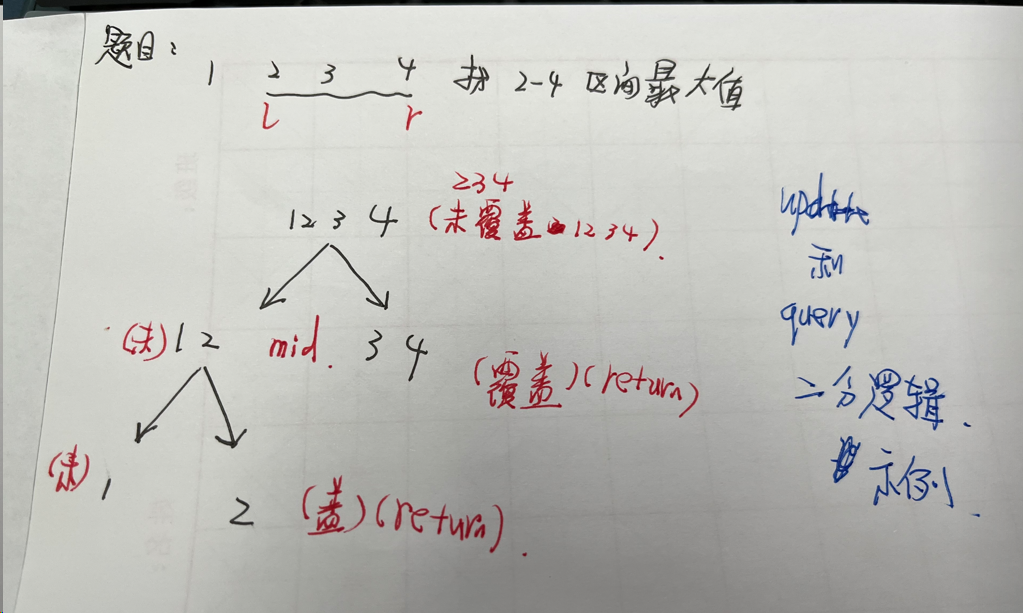 题目:
1 2 3 4 求 2-4 区间最大值
l r
234
1 2 3 4 (未覆盖 1 2 3 4).
(未) 1 2 mid. 3 4 (覆盖)(return)
(未) 1 2 (盖)(return).
update
和
query
二分逻辑.
示例.